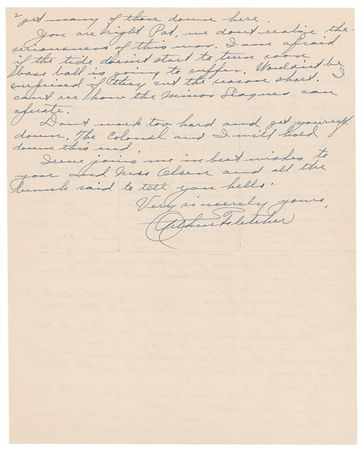 2
get many of those down here.
You are right Pat, we dont realize the
seriousness of this war. I am afraid
if the tide doesnt start to turn soon
base ball is going to suffer. Wouldnt be
surprised if they cut the season short. I
cant see how the minor leagues can
operate.
Dont work too hard and get yourself
down, the Colonel and I will hold
down this end.
Irene joins me in best wishes to
you and Mrs Olsen and all the
bunch said to tell you hello.
Very sincerely yours,
Arthur Fletcher